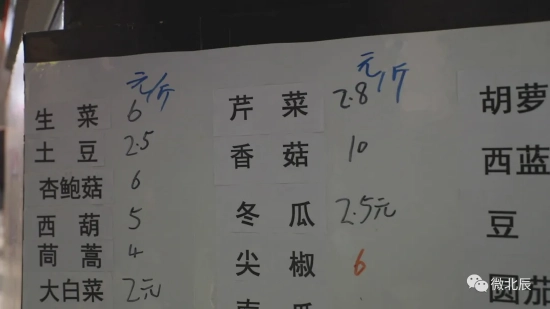 元/斤
生菜 6
土豆 2.5
杏鲍菇 6
西葫 5
茼蒿 4
大白菜 2元
元/斤
芹菜 2.8
香菇 10
冬瓜 2.5元
尖椒 6
胡萝
西蓝
豆
圆茄
微北辰